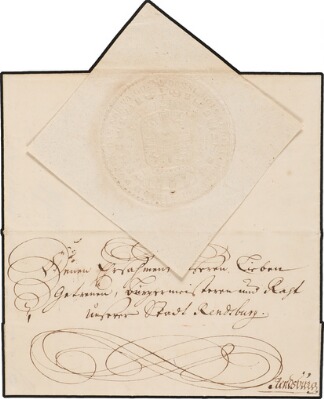 Denen Ersahmen Unseren Lieben
Getreuen, Bürgermeisteren und Raht
unserer Stadt Rendsburg.
Rendsburg